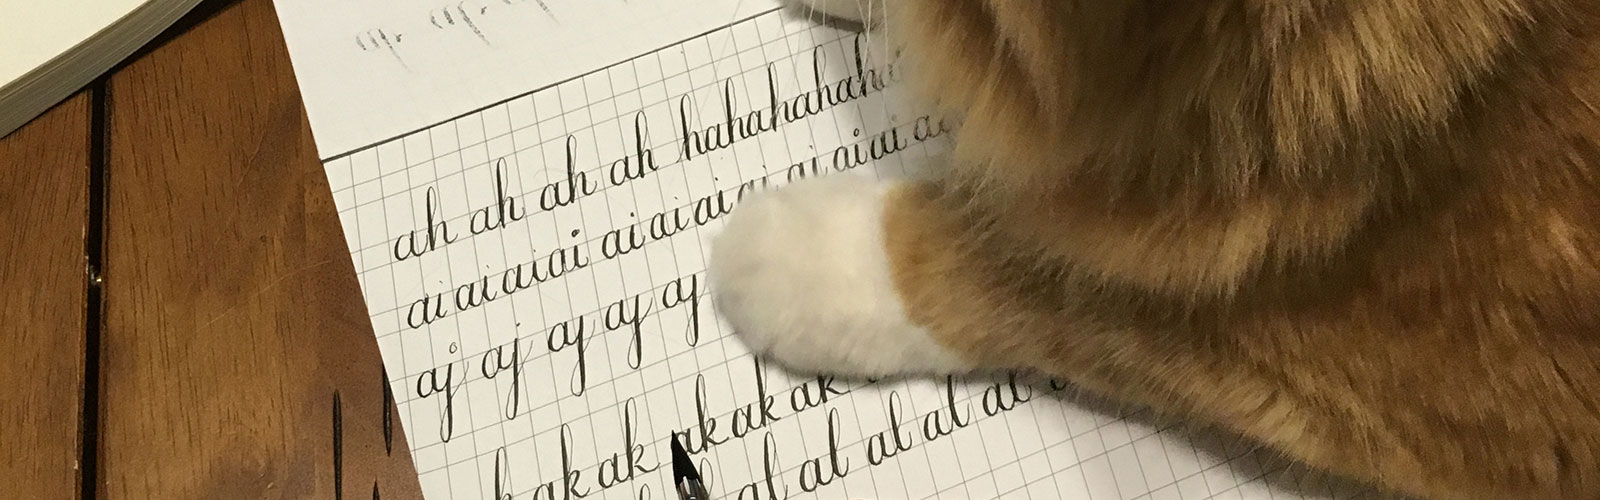 ah ah ah ah hahahahah
aiaiaiai aiaiai ai ai aiai
aj aj aj aj aj
ak ak ak ak ak
al al al al al